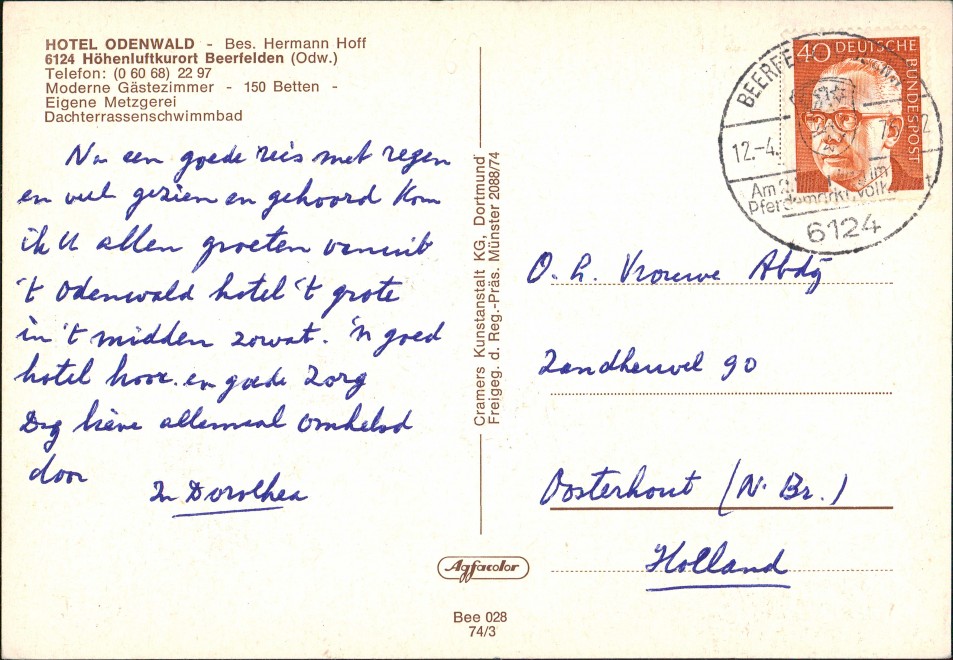 HOTEL ODENWALD - Bes. Hermann Hoff
6124 Höhenluftkurort Beerfelden (Odw.)
Telefon: (0 60 68) 22 97
Moderne Gästezimmer - 150 Betten -
Eigene Metzgerei
Dachterrassenschwimmbad
Na een goede reis met regen
en veel gezien en gehoord kom
ik U allen groeten vanuit
't Odenwald hotel 't grote
in 't midden zowat. 'n goed
hotel hoor. en goede zorg
Dag lieve allemaal omhelsd
door
Zr Dorothea
Cramers Kunstanstalt KG, Dortmund
Freigeg. d. Reg.-Präs. Münster 2088/74
Agfacolor
Bee 028
74/3
40 DEUTSCHE
BUNDESPOST
BEERFE
12.-4.
Am
im
Pferdemarkt
6124
Vrouwe Abdÿ
Zandheuvel 90
Oosterhout (N. Br.)
Holland